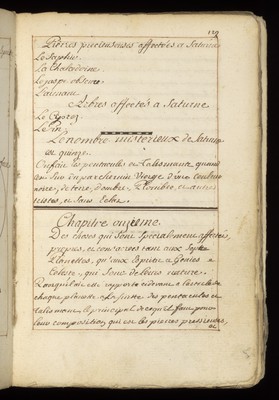 129
Pierres precieuses affectées a Saturne
Le Saphir.
La Chalcedoine.
Le jaspe obscur.
L'aimant.
Arbres affectés a Saturne
Le Cyprez
Le Pin,
Le nombre misterieux de Saturne
est quinze.
On fait les pentacules et Talismans quand
on sur du parchemin Vierge d'une couleur
noire, de terre, d'ombre, Plombée, et autres
tristes, et sans éclat.
Chapitre onzieme.
Des choses qui sont specialement affectées,
propres, et consacrées tant aux Sept
Planettes, qu'aux Esprits et Genies
Celeste, qui sont de leurs nature.
Lorsqu'il a été rapporté cidevant a l'article de
chaque planette a la suitte des pentacules et
talismans le principal de ce qu'il faut pour
leur composition, qui est les pierres precieuses,